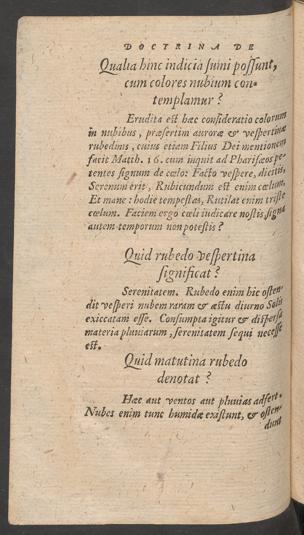 DOCTRINA DE
Qualia hinc indicia sumi possunt,
cum colores nubium con-
templamur?
Erudita est hæc consideratio colorum
in nubibus, præsertim auroræ & vespertinæ
rubedinis, cuius etiam Filius Dei mentionem
facit Matth. 16. cum inquit ad Pharisæos pe-
tentes signum de cælo: Facto vespere, dicitis,
Serenum erit, Rubicundum est enim cœlum,
Et mane: hodie tempestas, Rutilat enim triste
cœlum. Faciem ergo cœli iudicare nostis, signa
autem temporum non potestis?
Quid rubedo vespertina
significat?
Serenitatem. Rubedo enim hic osten-
dit vesperi nubem raram & æstu diurno Solis
exiccatam esse. Consumpta igitur & dispersa
materia pluuiarum, serenitatem sequi necesse
est.
Quid matutina rubedo
denotat?
Hæc aut ventos aut pluuias adfert.
Nubes enim tunc humidæ existunt, & osten-
dunt